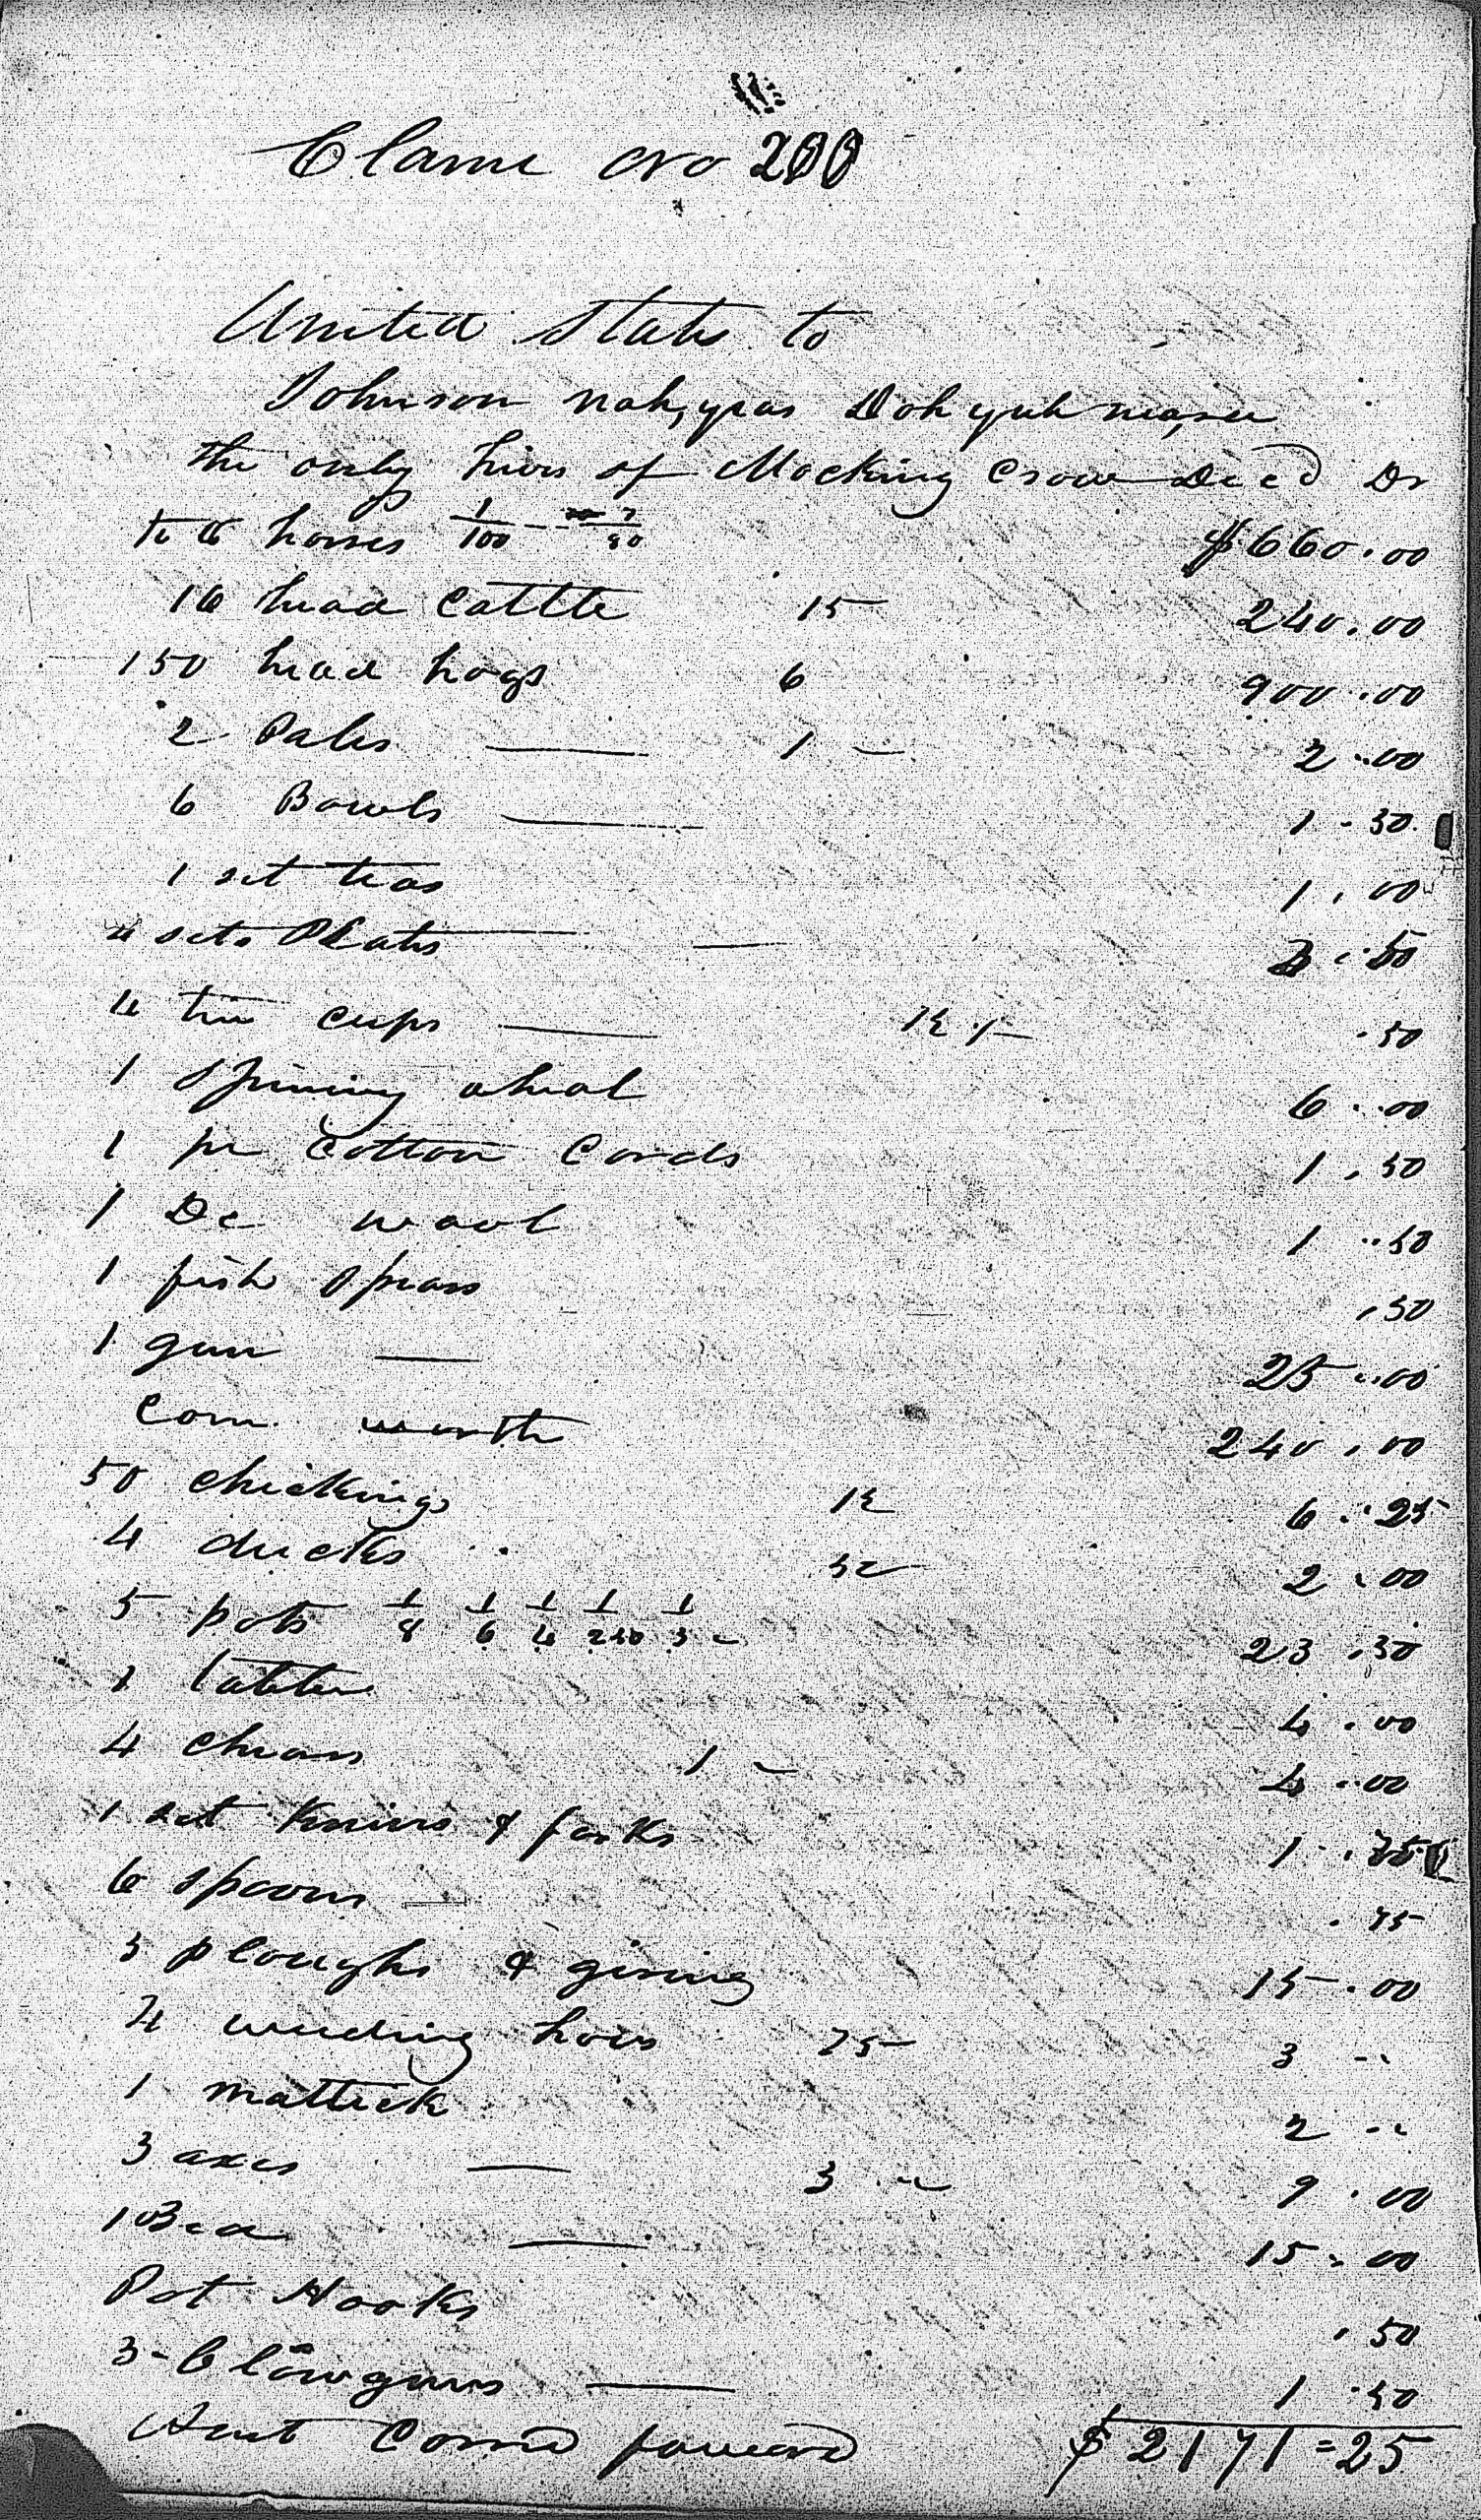 Claim No 200
United States to
Johnson nah,yeas Doh yuh
the only hiers of Mocking Crow Decd Dr
to 8 horses 1/100 -- 7/80 $660.00
16 head Cattle 15 240.00
150 head hogs 6 900.00
2 Pales 1 — 2.00
6 Bowls 1.50
1 set teas 1.00
4 sets Plates
4 tin cups 12 1/— .50
1 Spining wheal 6.00
1 pr Cotton Cards 1.50
1 Do wool 1.50
1 fish Spears .50
1 gun 25.00
Corn worth 240.00
50 chickings 12 6.25
4 ducks 50 2.00
5 pots 1/8 1/6 1/4 1/250 1/3 23.50
1 table 4.00
4 chears 1 — 4.00
1 set Knives & forks 1.75
6 Spoons .75
3 ploughs & giring 15.00
4 weeding hoes 75 3 --
1 mattick 2 --
3 axes 3 -- 9.00
1 Bed 15.00
Pot Hooks .50
3 - blowguns 1.50
Amt Carrid forward $2171=25